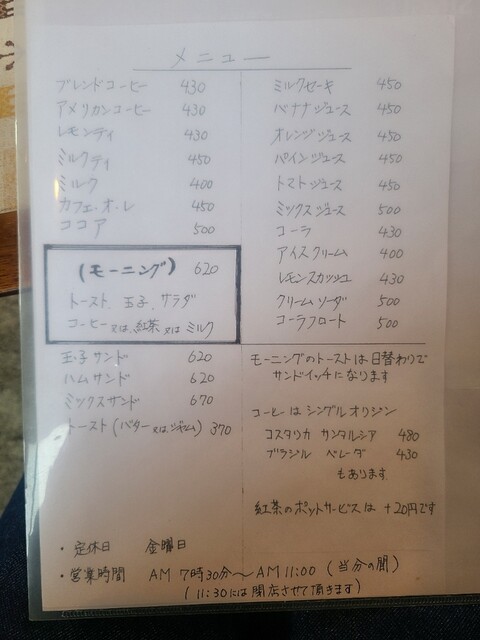 メニュー
ブレンドコーヒー 430
アメリカンコーヒー 430
レモンティ 430
ミルクティ 450
ミルク 400
カフェ・オ・レ 450
ココア 500
(モーニング) 620
トースト、玉子、サラダ
コーヒー又は紅茶又はミルク
玉子サンド 620
ハムサンド 620
ミックスサンド 670
トースト(バター又はジャム) 370
ミルクセーキ 450
バナナジュース 450
オレンジジュース 450
パインジュース 450
トマトジュース 450
ミックスジュース 500
コーラ 430
アイスクリーム 400
レモンスカッシュ 430
クリームソーダ 500
コーラフロート 500
モーニングのトーストは日替わりで
サンドイッチになります
コーヒーはシングルオリジン
コスタリカ サンタルシア 480
ブラジル ベレーダ 430
もあります
紅茶のポットサービスは +20円です
・定休日 金曜日
・営業時間 AM 7時30分〜AM 11:00 (当分の間)
(11:30には閉店させて頂きます)